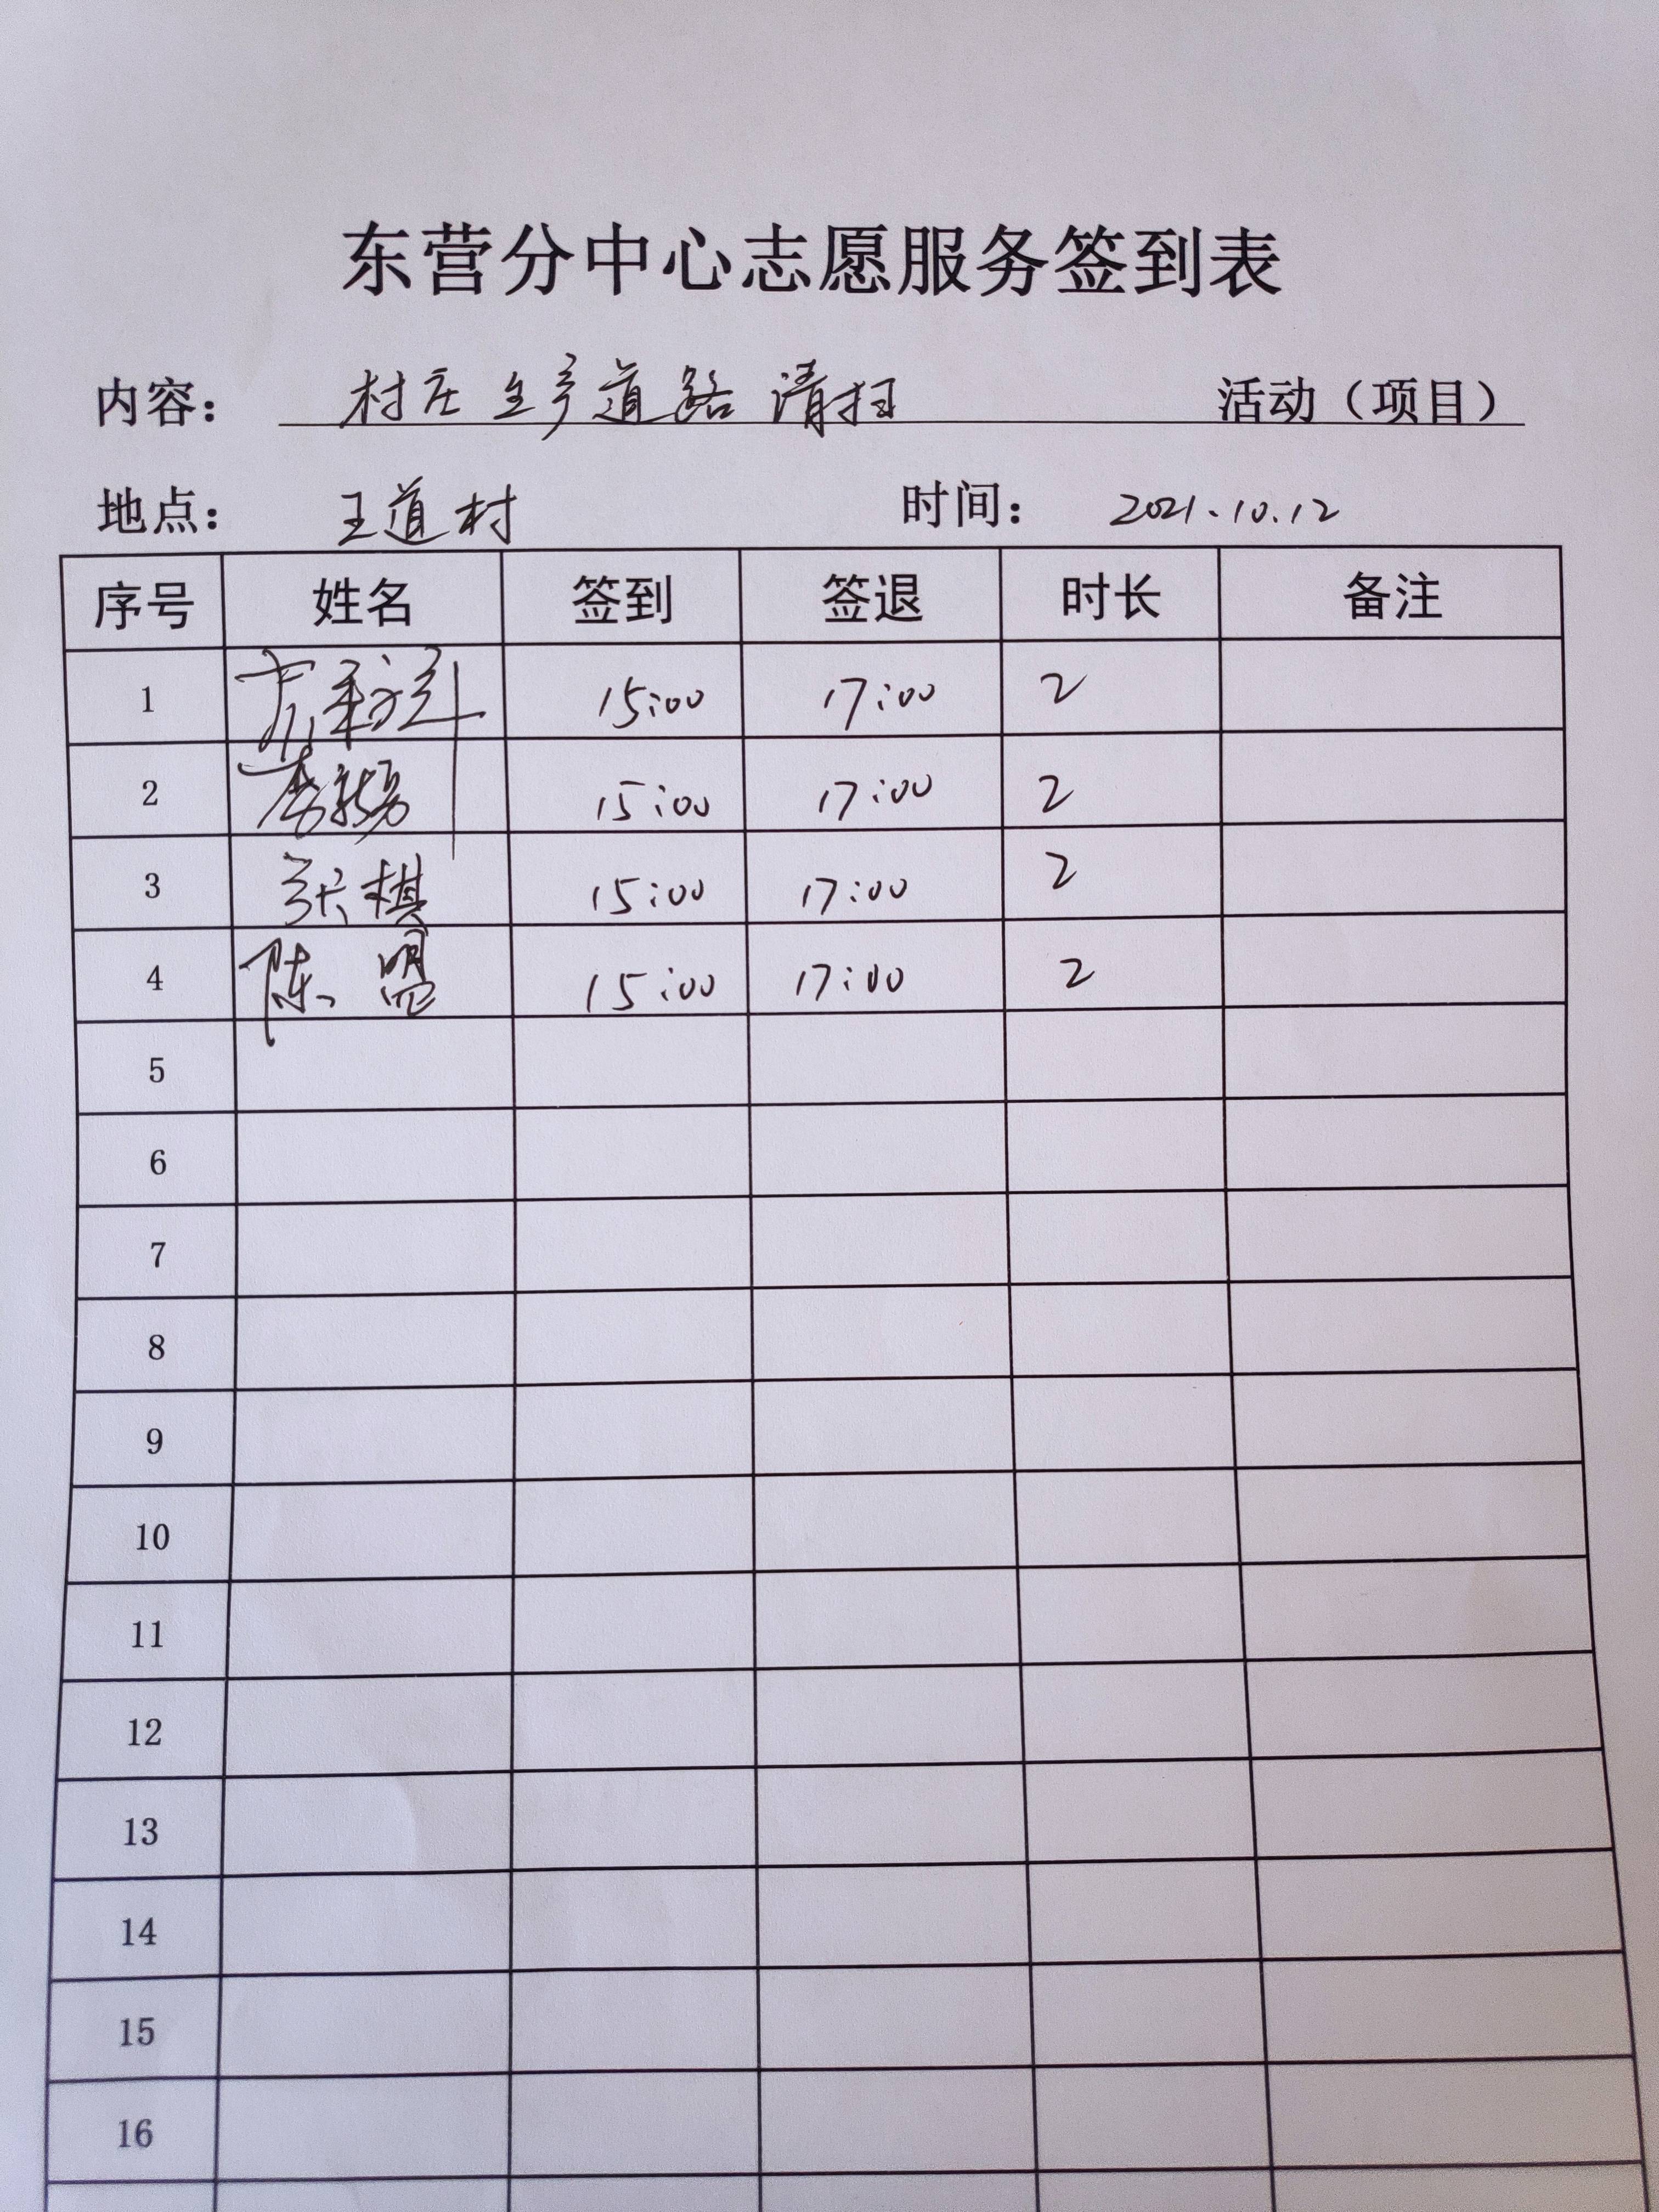 东营分中心志愿服务签到表
内容：村庄生产道路清扫 活动（项目）
地点：王道村 时间：2021.10.12
序号 姓名 签到 签退 时长 备注
1 15:00 17:00 2
2 李 15:00 17:00 2
3 张棋 15:00 17:00 2
4 陈盟 15:00 17:00 2
5
6
7
8
9
10
11
12
13
14
15
16